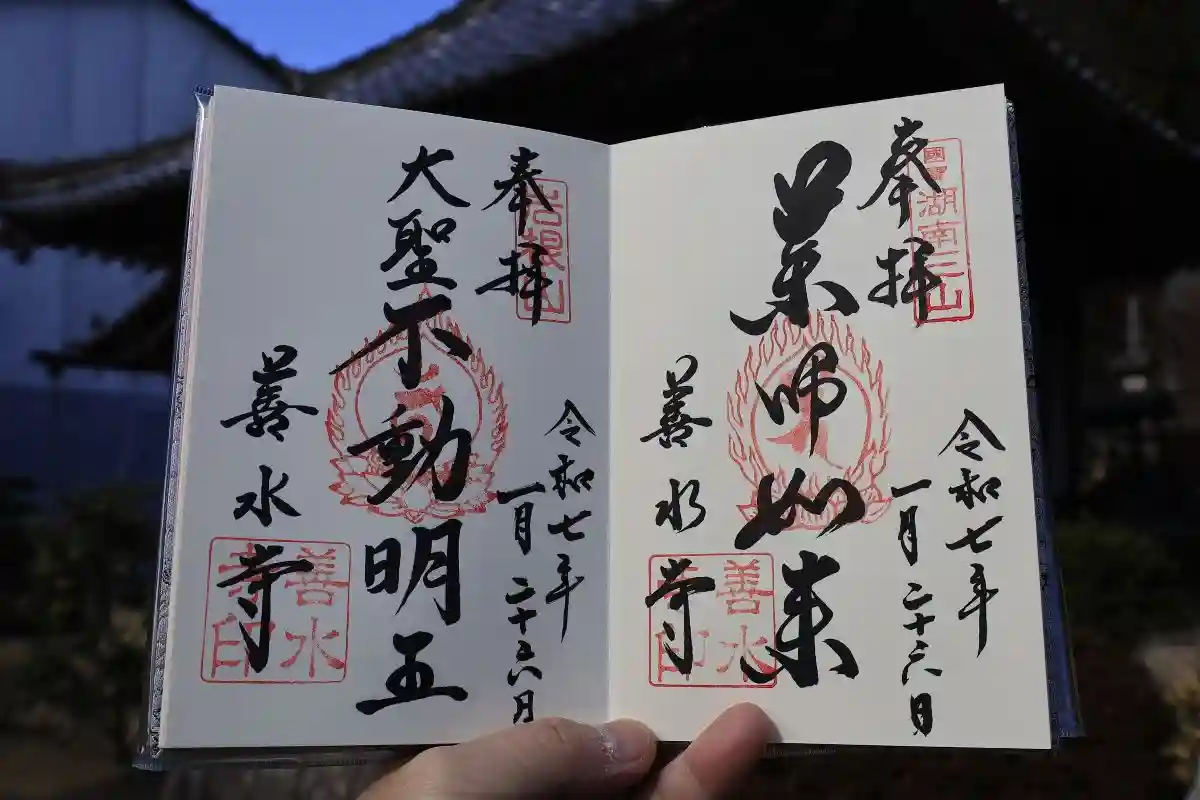 國寶
湖南三山
奉拝
令和七年
一月二十六日
薬師如来
善水寺
善水寺印
岩根山
奉拝
令和七年
一月二十六日
大聖不動明王
善水寺
善水寺印